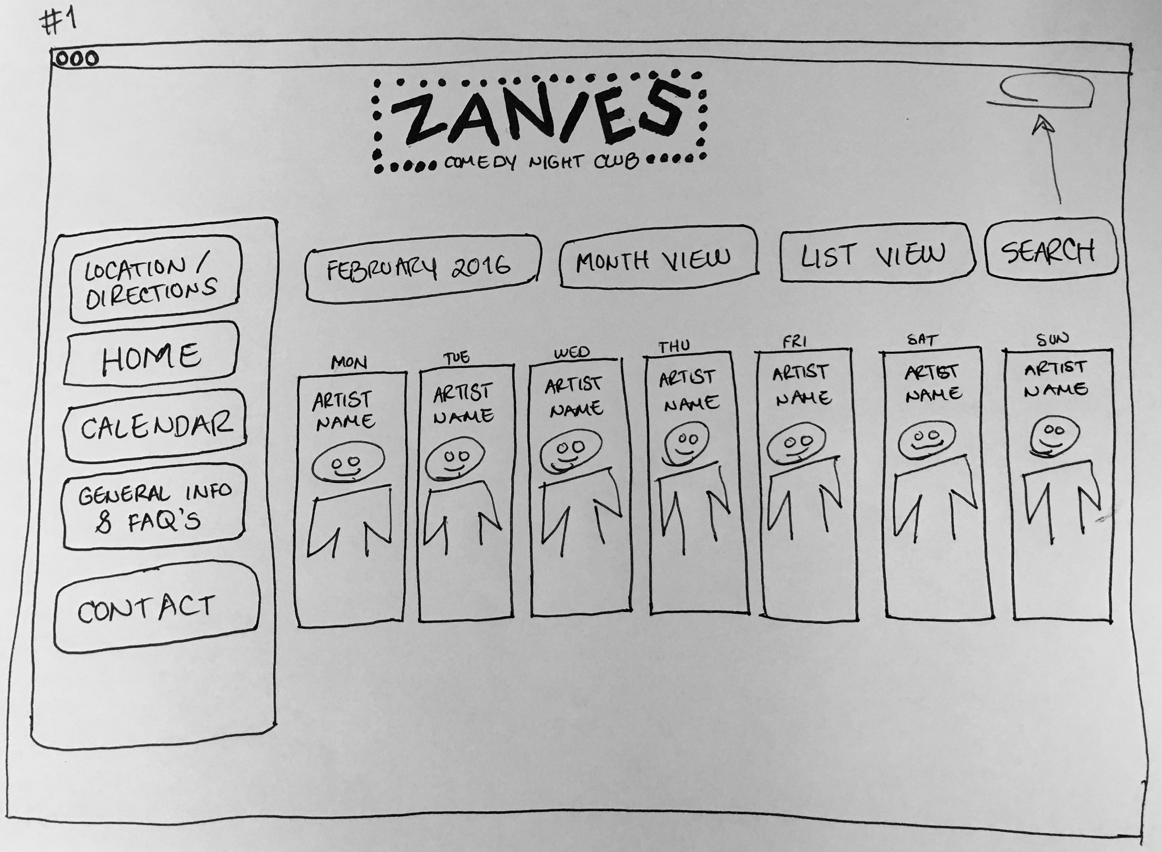 #1
ZANIES
COMEDY NIGHT CLUB
LOCATION /
DIRECTIONS
HOME
CALENDAR
GENERAL INFO
& FAQ'S
CONTACT
FEBRUARY 2016
MONTH VIEW
LIST VIEW
SEARCH
MON
ARTIST
NAME
TUE
ARTIST
NAME
WED
ARTIST
NAME
THU
ARTIST
NAME
FRI
ARTIST
NAME
SAT
ARTIST
NAME
SUN
ARTIST
NAME